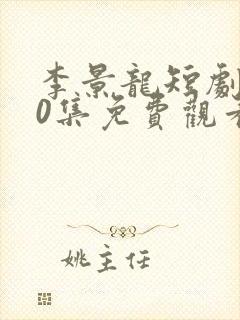 李景龍短劇
0集免費觀看
姚主任